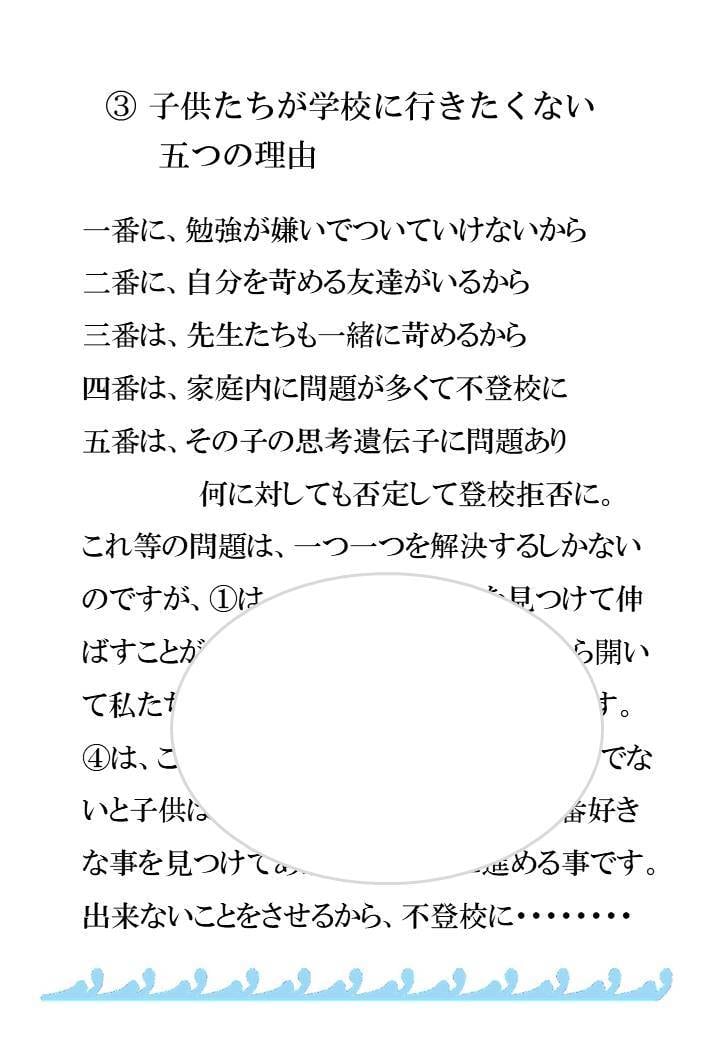 ③ 子供たちが学校に行きたくない
五つの理由
一番に、勉強が嫌いでついていけないから
二番に、自分を苛める友達がいるから
三番は、先生たちも一緒に苛めるから
四番は、家庭内に問題が多くて不登校に
五番は、その子の思考遺伝子に問題あり
何に対しても否定して登校拒否に。
これ等の問題は、一つ一つを解決するしかない
のですが、①は を見つけて伸
ばすことが ら開い
て私たち す。
④は、こ でな
いと子供は 番好き
な事を見つけてあ 進める事です。
出来ないことをさせるから、不登校に・・・・・・・・